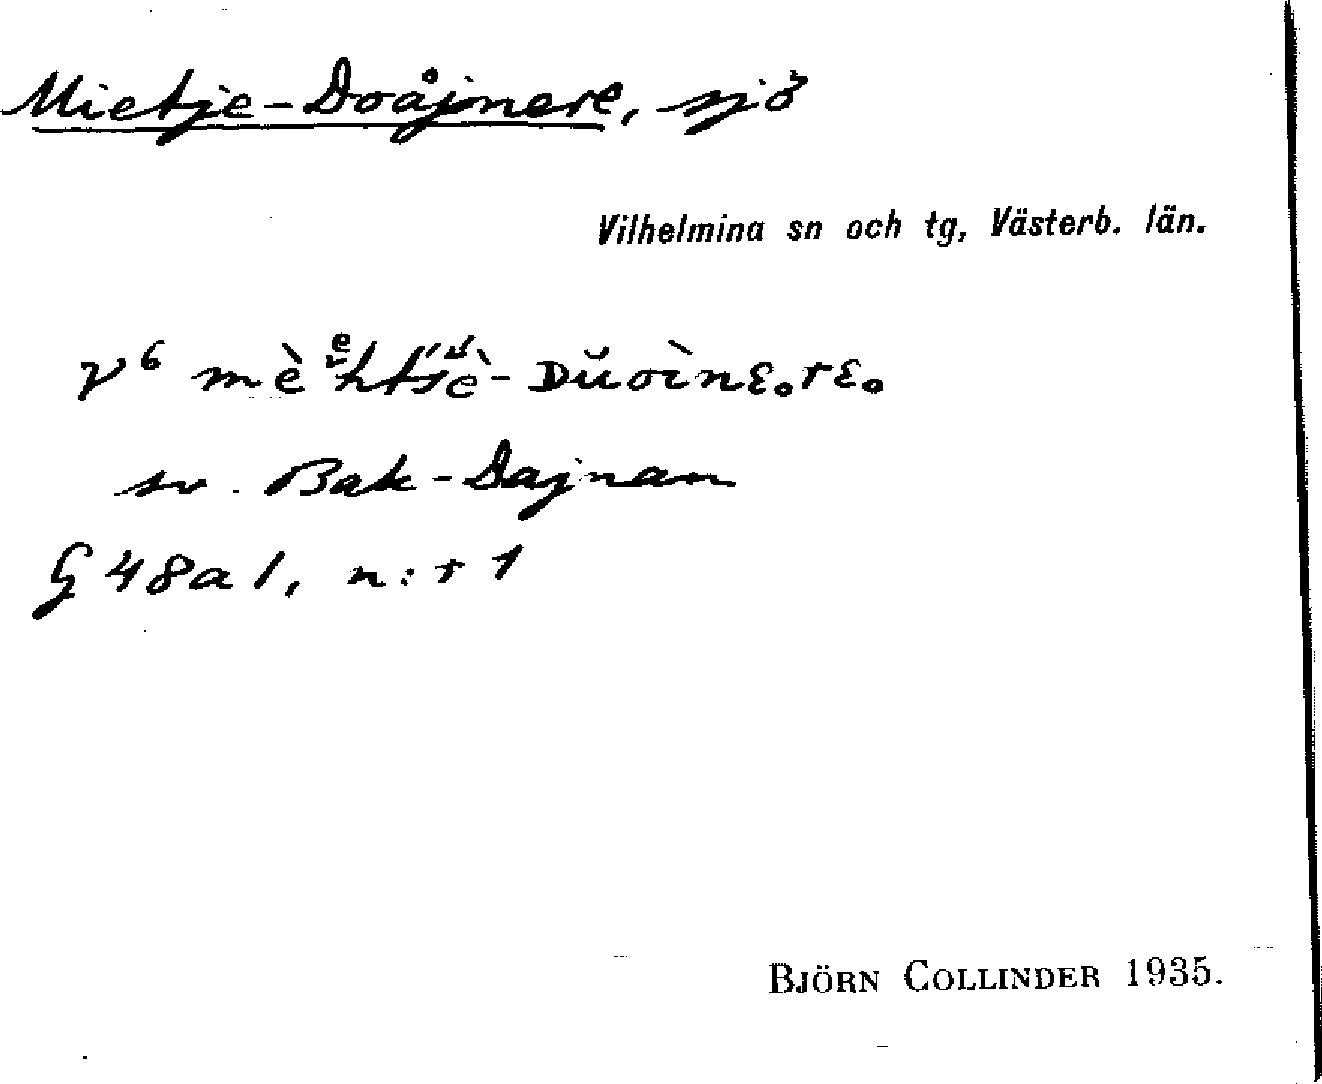 Mietje-Doåjnere, sjö
Vilhelmina sn och tg, Västerb. län.
V⁶
sv. Bak-Dajnan
§ 48a1, n:r 1
BJÖRN COLLINDER 1935.